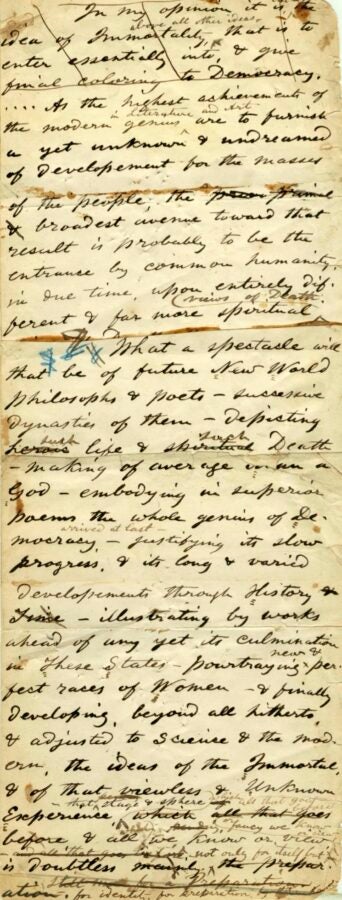 In my opinion it is the
above all other ideas,
idea of Immortality, that is to
enter essentially into, & give
final coloring to Democracy.
.... As the highest achievements of
in literature and Art
the modern genius are to furnish
a yet unknown & undreamed
of developement for the masses
of the people, the primal
& broadest avenue toward that
result is probably to be the
entrance by common humanity,
in due time, upon entirely dif-
views of Death
ferent & far more spiritual
What a spectacle will
that be of future New World
philosophs & poets – successive
dynasties of them – depicting
such such
heroic life & spiritual Death
– making of average man a
God – embodying in superior
poems the whole genius of De-
arrived at last –
mocracy, – justifying its slow
progress, & its long & varied
developements through History &
Time – illustrating by works
ahead of any yet its culmination
new &
in These States – pourtraying per-
fect races of Women – & finally
developing, beyond all hitherto,
& adjusted to Science & the mod-
ern, the ideas of the Immortal,
& of that viewless & Unknown
that stage & sphere of
Experience which all that goes
before & all we know or view
not only for itself but
is doubtless the prepar-
ation. for identity, for preparation, by